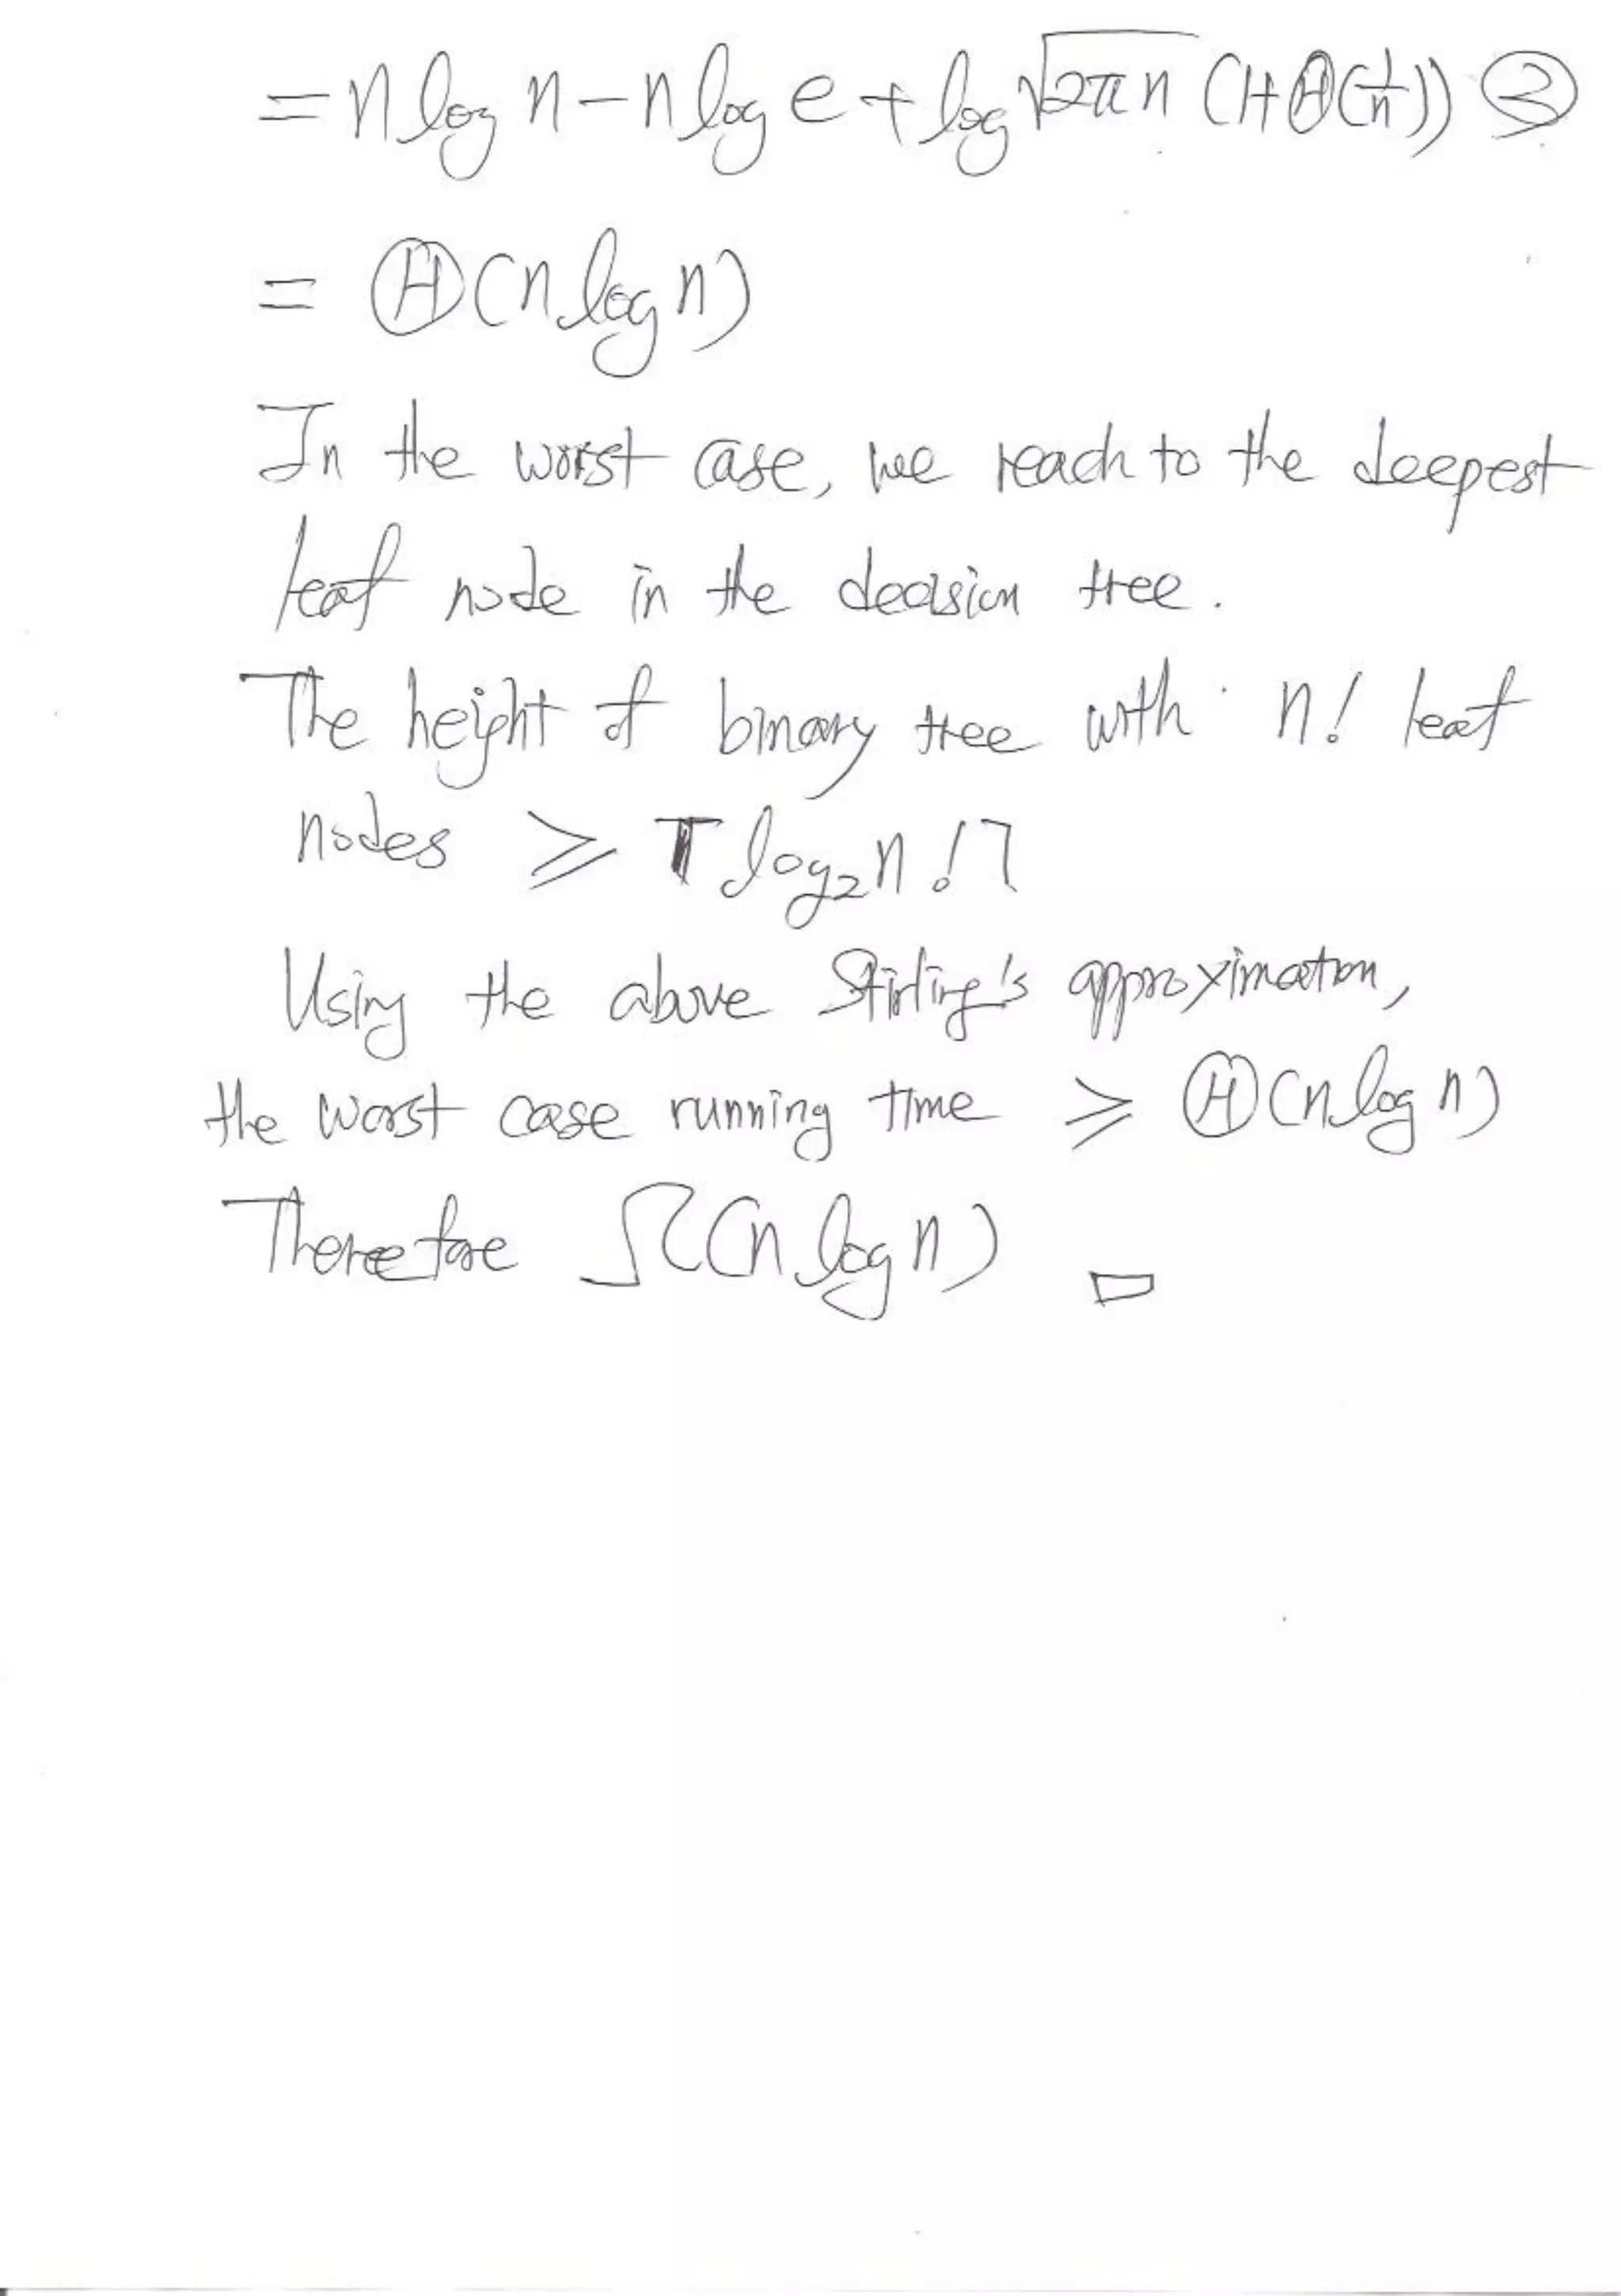 = n log n - n log e + log √2πn (1+Θ(1/n)) ③
= Θ(n log n)
In the worst case, we reach to the deepest
leaf node in the decision tree.
The height of binary tree with n! leaf
nodes ≥ ⌈log₂n!⌉
Using the above Stirling's approximation,
the worst case running time ≥ Θ(n log n)
Therefore Ω(n log n) □